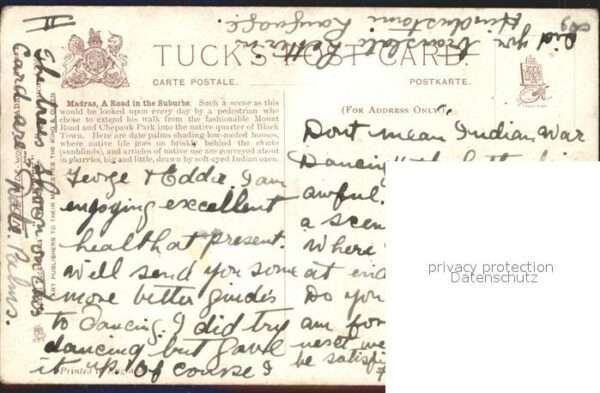 Did you translate letter in
Hindustani Language.
TUCK'S POST CARD.
CARTE POSTALE.
POSTKARTE.
Madras, A Road in the Suburbs. Such a scene as this
would be looked upon every day by a pedestrian who
chose to extend his walk from the fashionable Mount
Road and Chepauk Park into the native quarter of Black
Town. Here are date palms shading low-roofed houses,
where native life goes on briskly behind the
(sunblinds), and articles of native use are conveyed about
in gharries, big and little, drawn by soft-eyed Indian oxen.
George & Eddie, I am
enjoying excellent
health at present.
Will send you some
more better
to dancing. I did try
dancing but gave
it up of course I
Printed in
(FOR ADDRESS ONLY)
Dont mean Indian War
Dancing
awful.
a scen
Where
at end
Do you
am for
be satisfi
II
The trees shown on this
Card are Date Palms.
ART PUBLISHERS TO THEIR MAJESTIES THE KING & QUEEN
privacy protection
Datenschutz